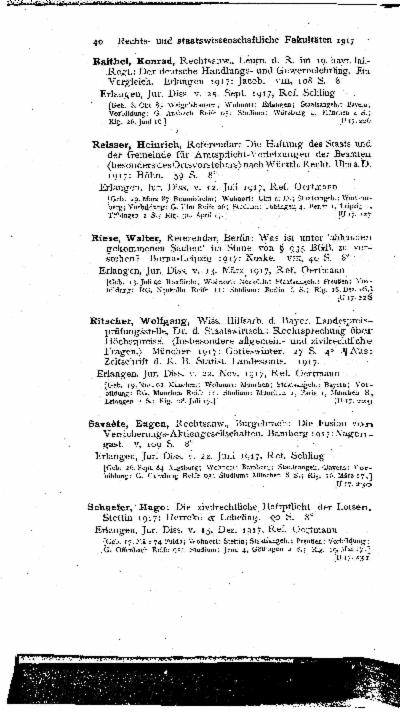 40 Rechts- und staatswissenschaftliche Fakultäten 1917
Raithel, Konrad, Rechtsanw., Leutn. d. R. im 19. bayr. Inf.-
Regt.: Der deutsche Handlungs- und Gewerbelehrling. Ein
Vergleich. Erlangen 1917: Jacob. VIII, 108 S. 8°
Erlangen, Jur. Diss. v. 25. Sept. 1917, Ref. Sehling
[Geb. 8. Okt. 85 Wohnort: Erlangen; Staatsangeh.: Bayern;
Vorbildung: G. Ansbach Reife 05; Studium: Würzburg 2, München 2 S.;
Rig. 26. Juni 16.] [U 17. 226
Reisser, Heinrich, Referendar: Die Haftung des Staats und
der Gemeinde für Amtspflicht-Verletzungen der Beamten
(besonders des Ortsvorstehers) nach Württb. Recht. Ulm a. D.
1917: Höhn. 59 S. 8°
Erlangen, Jur. Diss. v. 12. Juli 1917, Ref. Oertmann
[Geb. 19. März 87 Wohnort: Ulm a. D.; Staatsangeh.: Württem-
berg; Vorbildung: G. Ulm Reife 06; Studium: Tübingen 4, Berlin 1, Leipzig 1,
Tübingen 2 S.; Rig. 30. April 17.] [U 17. 227
Riese, Walter, Referendar, Berlin: Was ist unter 'abhanden
gekommenen Sachen' im Sinne von § 935 BGB. zu ver-
stehen? Borna-Leipzig 1917: Noske. VIII, 40 S. 8°
Erlangen, Jur. Diss. v. 13. März 1917, Ref. Oertmann
[Geb. 13. Juli 90 Wohnort: Staatsangeh.: Preußen; Vor-
bildung: RG. Neukölln Reife 11; Studium: Berlin 6 S.; Rig. 18. Dez. 16.]
[U 17. 228
Ritscher, Wolfgang, Wiss. Hilfsarb. d. Bayer. Landespreis-
prüfungsstelle, Dr. d. Staatswirtsch.: Rechtsprechung über
Höchstpreise. (Insbesondere allgemein- und zivilrechtliche
Fragen.) München 1917: Gotteswinter. 27 S. 4° ¶ Aus:
Zeitschrift d. K. B. Statist. Landesamts. 1917.
Erlangen, Jur. Diss. v. 22. Nov. 1917, Ref. Oertmann
[Geb. 19. Nov. 92 München; Wohnort: München; Staatsangeh.: Bayern; Vor-
bildung: RG. München Reife 11; Studium: München 2, Paris 1, München 8,
Erlangen 2 S.; Rig. 28. Juli 17.] [U 17. 229
Savaète, Eugen, Rechtsanw., Burgebrach: Die Fusion von
Versicherungs-Aktiengesellschaften. Bamberg 1917: Nagen-
gast. V, 109 S. 8°
Erlangen, Jur. Diss. v. 22. Juni 1917, Ref. Sehling
[Geb. 26. Sept. 84 Augsburg; Wohnort: Bamberg; Staatsangeh.: Bayern; Vor-
bildung: G. Reife 03; Studium: München 8 S.; Rig. 26. März 17.]
[U 17. 230
Schaefer, Hugo: Die zivilrechtliche Haftpflicht der Lotsen.
Stettin 1917: Herrcke & Lebeling. 90 S. 8°
Erlangen, Jur. Diss. v. 15. Dez. 1917, Ref. Oertmann
[Geb. 17. Mai 74 Fulda; Wohnort: Stettin; Staatsangeh.: Preußen; Vorbildung:
G. Reife 92; Studium: Jena 4, Göttingen 2 S.; Rig. 19. Mai 17.]
[U 17. 231